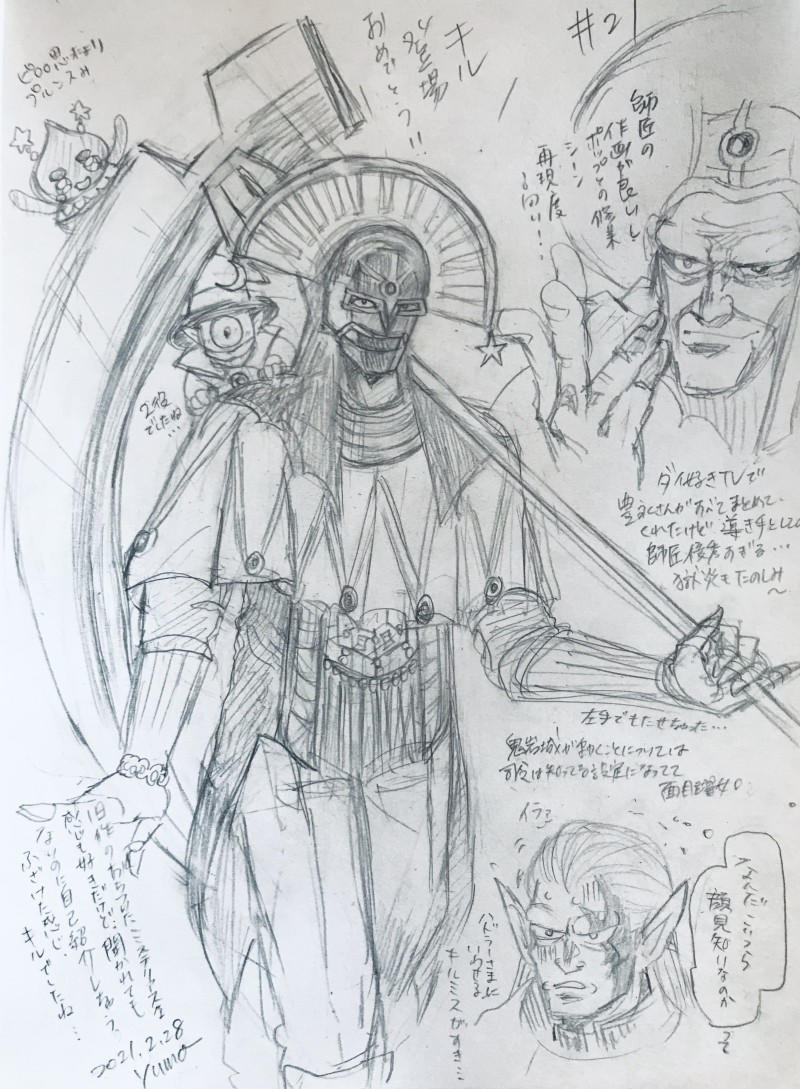 #2
キル
登場
おめでとう!!
師匠の
作画が良いし
ポップとの修業
シーン
再現度
高い!..
プルンスみ
2役
でしたね
...
ダイ好きTVで
豊永さんがすべてまとめて
くれたけど 導き手として
師匠優秀すぎる...
獄炎もたのしみ
〜
左手でもたせちゃった...
鬼岩城が動くことについては
司令は知ってる設定になってて
面目躍如。
イラッ
なんだこいつら
顔見知りなのか
って
ハドラーさまに
いらせる
キルミスがすき...
旧作の
感じも好きだけど、聞かれても
ないのに自己紹介しちゃう
ふざけた感じ。
キルでしたね...
2021.2.28
yuma